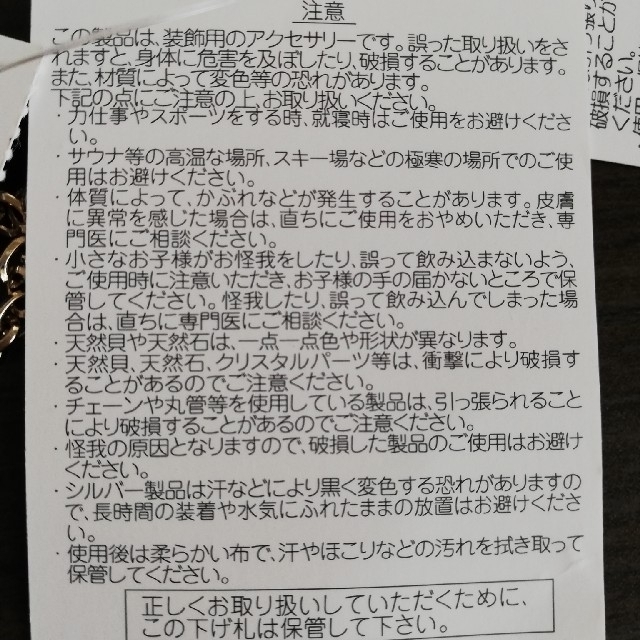 注意
この製品は、装飾用のアクセサリーです。誤った取り扱いをさ
れますと、身体に危害を及ぼしたり、破損することがあります。
また、材質によって変色等の恐れがあります。
下記の点にご注意の上、お取り扱いください。
・力仕事やスポーツをする時、就寝時はご使用をお避けくださ
い。
・サウナ等の高温な場所、スキー場などの極寒の場所でのご使
用はお避けください。
・体質によって、かぶれなどが発生することがあります。皮膚
に異常を感じた場合は、直ちにご使用をおやめいただき、専
門医にご相談ください。
・小さなお子様がお怪我をしたり、誤って飲み込まないよう、
ご使用時に注意いただき、お子様の手の届かないところで保
管してください。怪我したり、誤って飲み込んでしまった場
合は、直ちに専門医にご相談ください。
・天然貝や天然石は、一点一点色や形状が異なります。
・天然貝、天然石、クリスタルパーツ等は、衝撃により破損す
ることがあるのでご注意ください。
・チェーンや丸管等を使用している製品は、引っ張られること
により破損することがあるのでご注意ください。
・怪我の原因となりますので、破損した製品のご使用はお避け
ください。
・シルバー製品は汗などにより黒く変色する恐れがありますの
で、長時間の装着や水気にふれたままの放置はお避けくださ
い。
・使用後は柔らかい布で、汗やほこりなどの汚れを拭き取って
保管してください。
正しくお取り扱いしていただくために、
この下げ札は保管して下さい。
破損することが
ください。